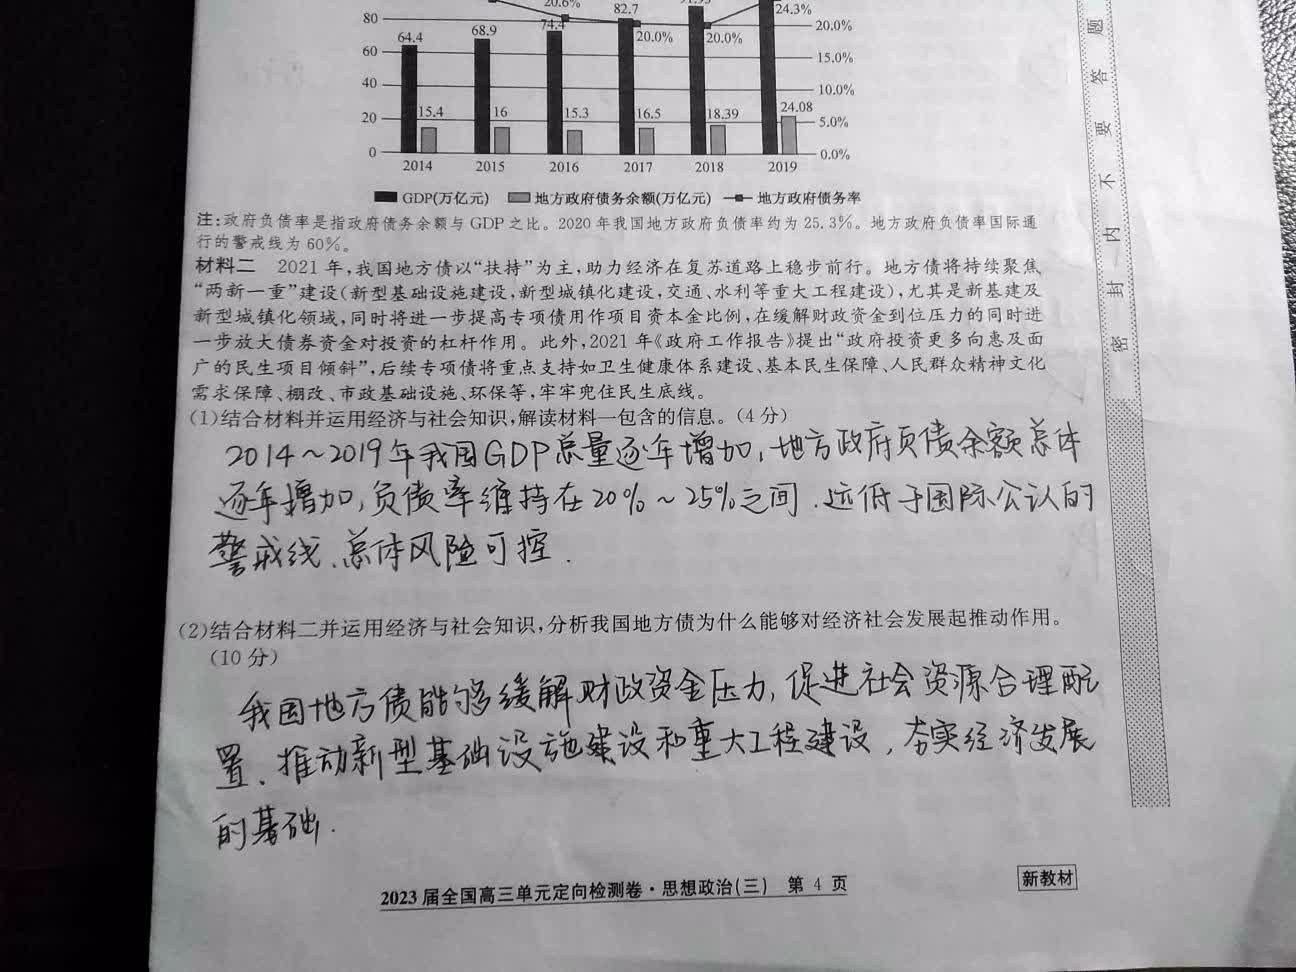 80
60
40
20
0
64.4
68.9
20.6%
74.4
82.7
20.0%
20.0%
24.3%
15.4
16
15.3
16.5
18.39
24.08
20.0%
15.0%
10.0%
5.0%
0.0%
2014 2015 2016 2017 2018 2019
GDP(万亿元) 地方政府债务余额(万亿元) 地方政府债务率
注:政府负债率是指政府债务余额与GDP之比。2020年我国地方政府负债率约为25.3%。地方政府负债率国际通
行的警戒线为60%。
材料二 2021年,我国地方债以“扶持”为主,助力经济在复苏道路上稳步前行。地方债将持续聚焦
“两新一重”建设(新型基础设施建设,新型城镇化建设,交通、水利等重大工程建设),尤其是新基建及
新型城镇化领域,同时将进一步提高专项债用作项目资本金比例,在缓解财政资金到位压力的同时进
一步放大债券资金对投资的杠杆作用。此外,2021年《政府工作报告》提出“政府投资更多向惠及面
广的民生项目倾斜”,后续专项债将重点支持如卫生健康体系建设、基本民生保障、人民群众精神文化
需求保障、棚改、市政基础设施、环保等,牢牢兜住民生底线。
(1)结合材料并运用经济与社会知识,解读材料一包含的信息。(4分)
2014~2019年我国GDP总量逐年增加,地方政府负债余额总体
逐年增加,负债率维持在20%~25%之间.远低于国际公认的
警戒线、总体风险可控.
(2)结合材料二并运用经济与社会知识,分析我国地方债为什么能够对经济社会发展起推动作用。
(10分)
我国地方债能够缓解财政资金压力,促进社会资源合理配
置、推动新型基础设施建设和重大工程建设,夯实经济发展
的基础.
2023届全国高三单元定向检测卷·思想政治(三) 第4页
新教材
密封一内不要答题